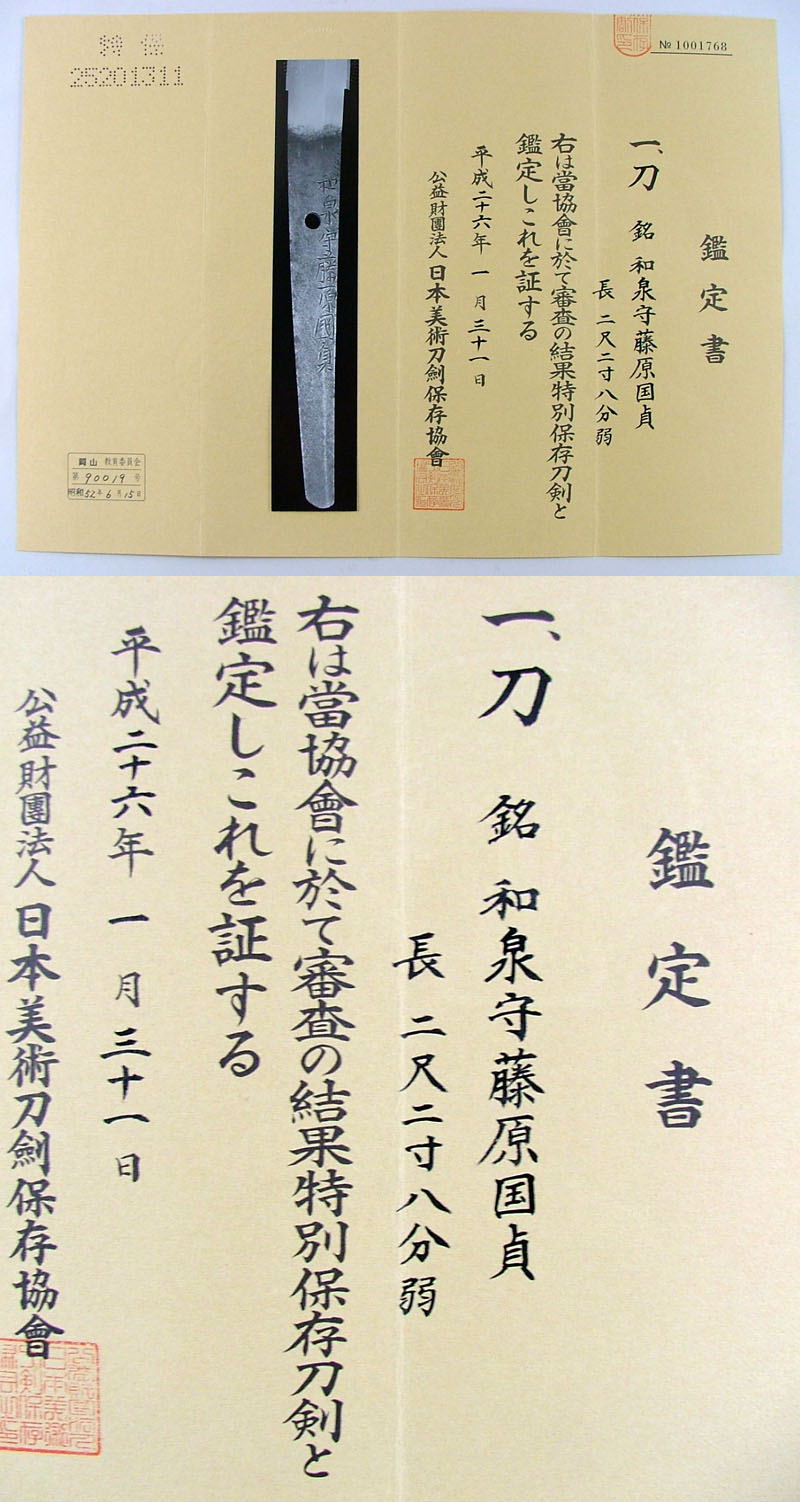 № 1001768
鑑定書
一、刀 銘 和泉守藤原国貞
長 二尺二寸八分弱
右は當協會に於て審査の結果特別保存刀剣と
鑑定しこれを証する
平成二十六年 一 月 三十一 日
公益財團法人 日本美術刀劍保存協會
和泉守藤原國貞
特 保
25201311
岡山 教育委員会
第 90019 号
昭和52年6月15日
鑑定書
一、刀 銘 和泉守藤原国貞
長 二尺二寸八分弱
右は當協會に於て審査の結果特別保存刀剣と
鑑定しこれを証する
平成二十六年 一 月 三十一 日
公益財團法人 日本美術刀劍保存協會